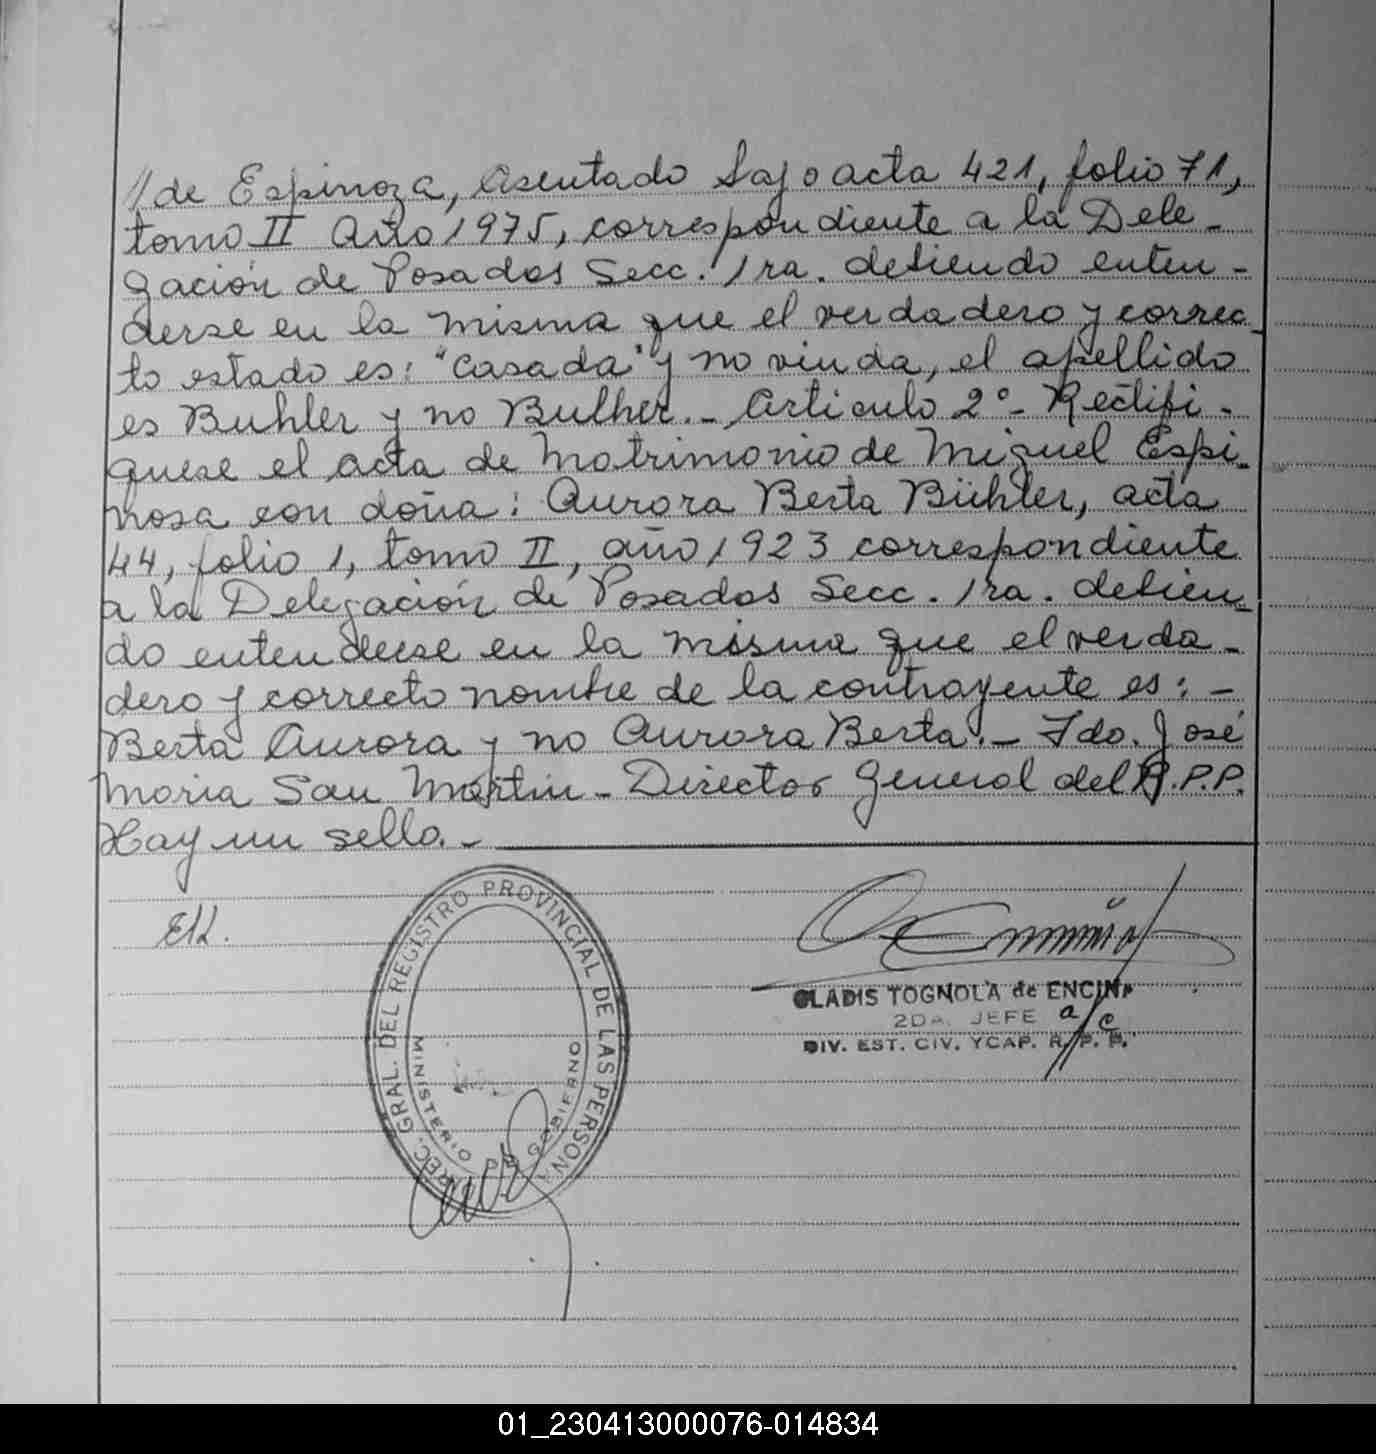 //de Espinoza, asentado bajo acta 421, folio 71,
tomo II año 1975, correspondiente a la Dele-
gación de Posadas Secc. 1ra. debiendo enten-
derse en la misma que el verdadero y correc-
to estado es: "Casada" y no viuda, el apellido
es Buhler y no Bulher.- Artículo 2º- Rectifí-
quese el acta de Matrimonio de Miguel Espi-
nosa con doña: Aurora Berta Bühler, acta
44, folio 1, tomo II, año 1923 correspondiente
a la Delegación de Posadas Secc. 1ra. debien-
do entenderse en la misma que el verda-
dero y correcto nombre de la contrayente es: -
Berta Aurora y no Aurora Berta.- Fdo. José
Maria San Martin - Director General del R.P.P.
Hay un sello. -
DIREC. GRAL. DEL REGISTRO PROVINCIAL DE LAS PERSON.
MINISTERIO DE GOBIERNO
GLADIS TOGNOLA de ENCINA
2DA. JEFE a/c
DIV. EST. CIV. YCAP. R. P. P.
01_230413000076-014834